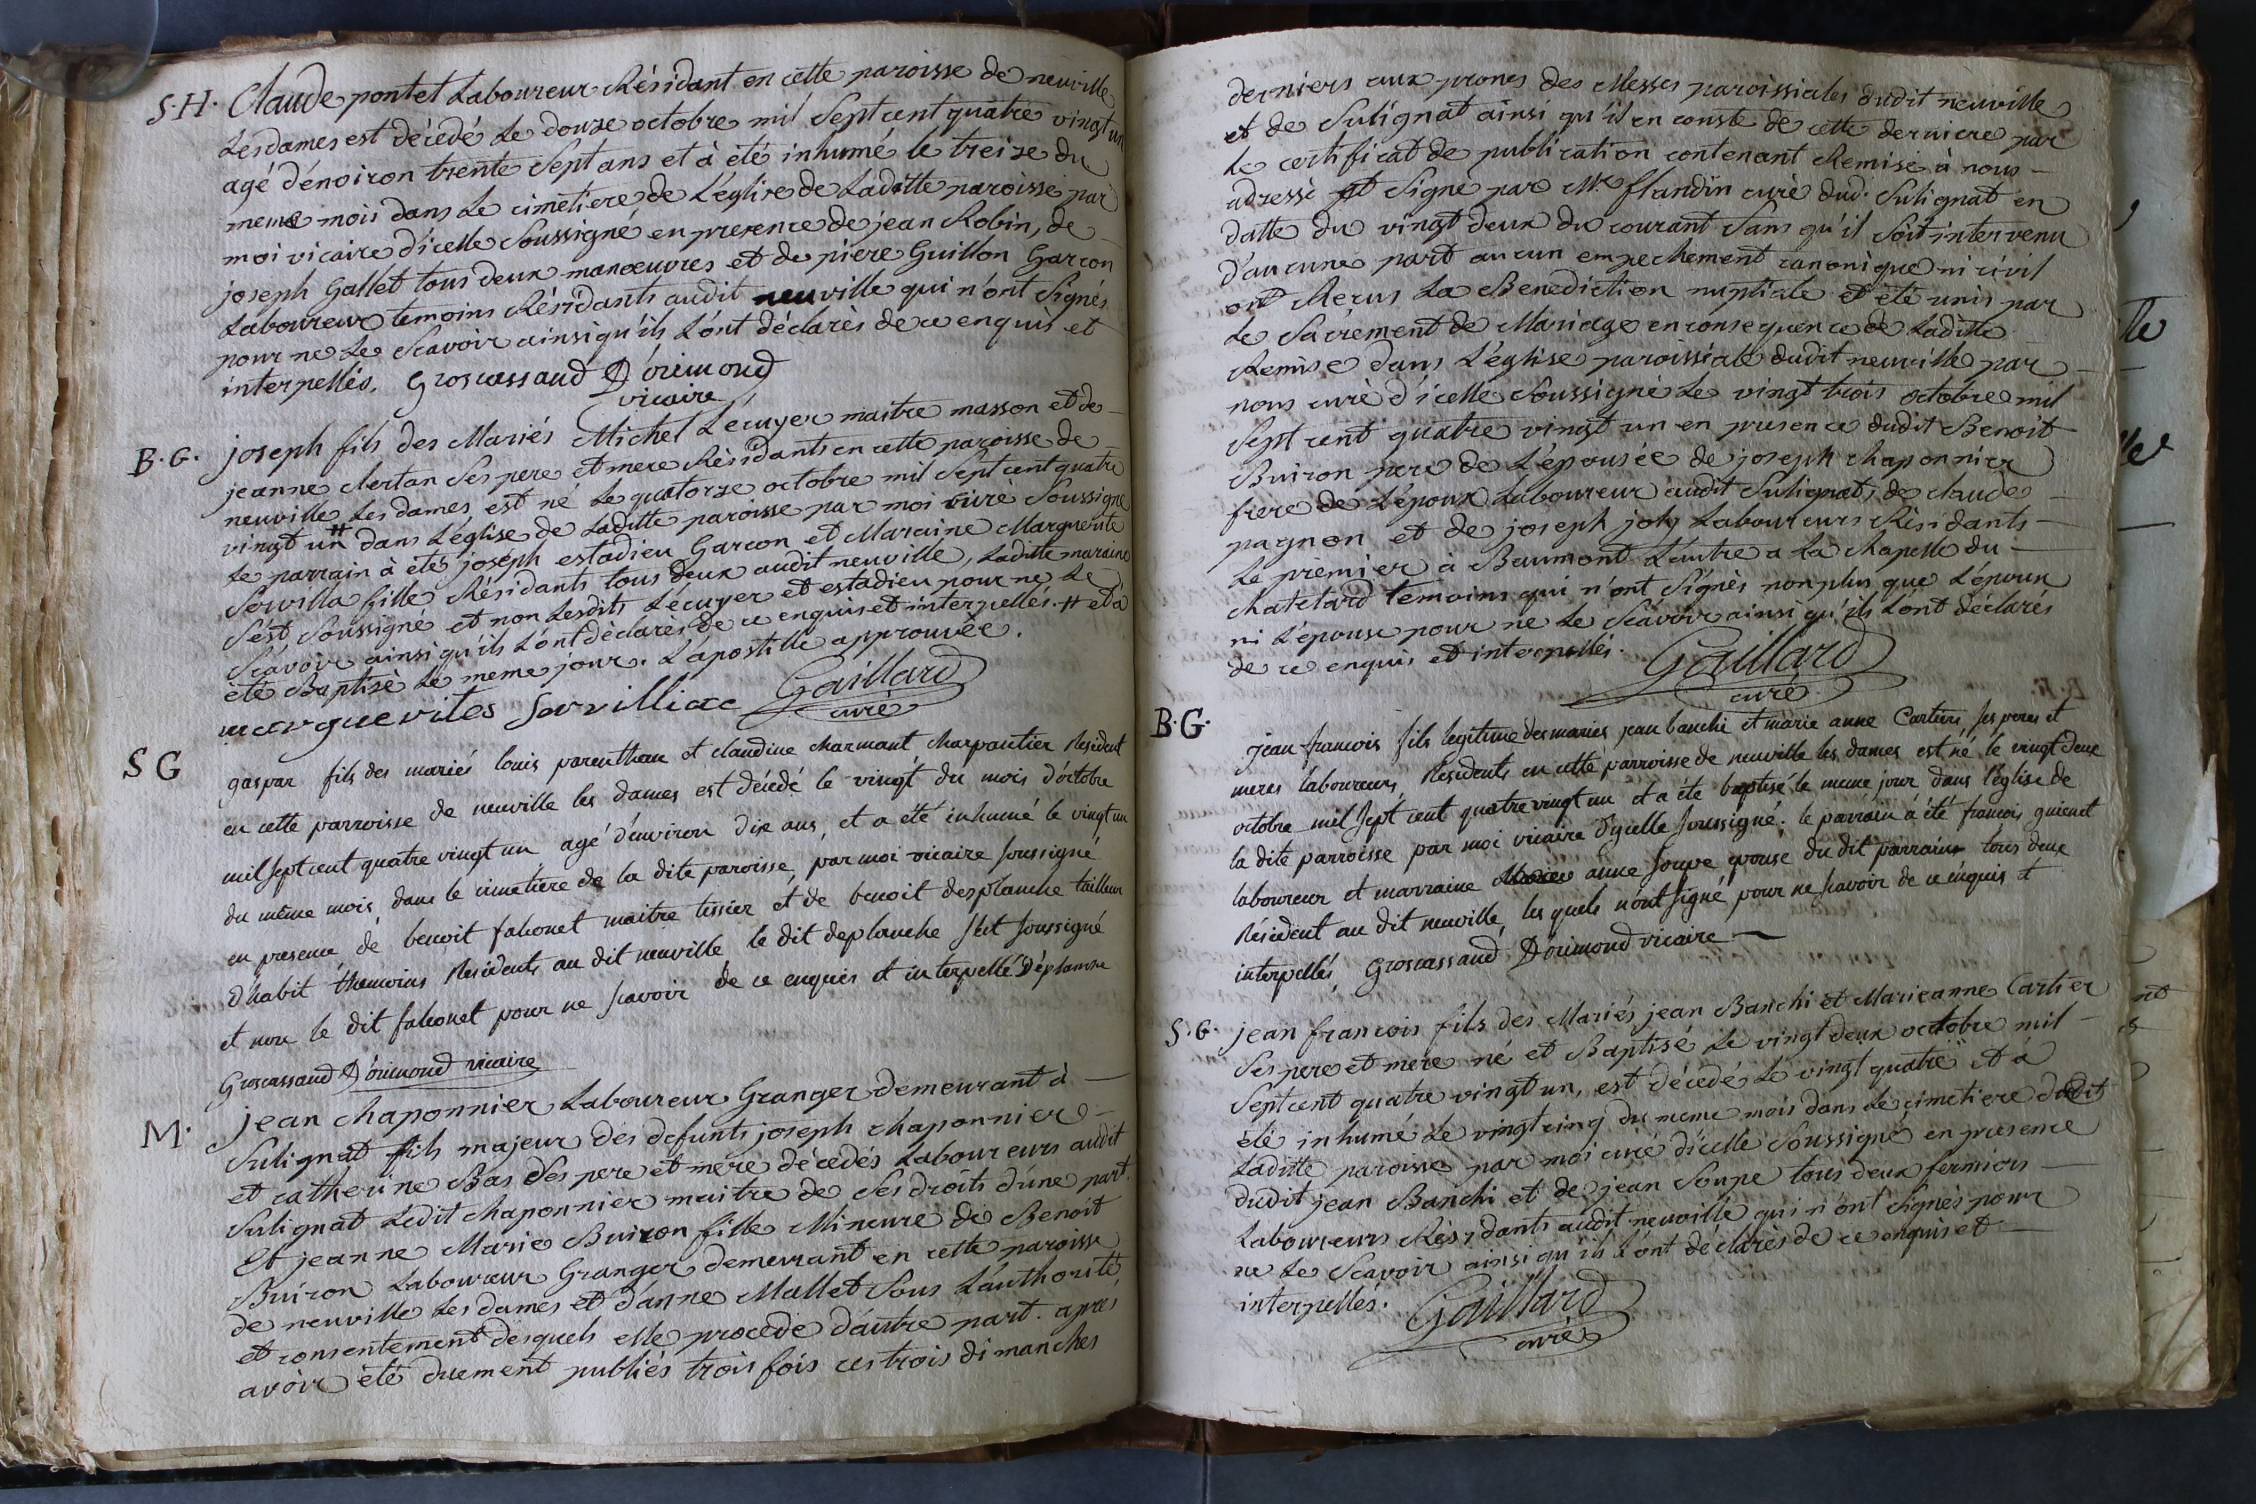 S.H. Claude pontet Laboureur Résidant en cette paroisse de neuville
Les dames est décedé Le douze octobre mil Sept cent quatre vingt un
agé d'énoiron trente Sept ans et à été inhumé le treize du
meme mois dans Le cimetiere de L'église de Laditte paroisse par
moi vicaire d'icelle Soussigné en presence de jean Robin, de
joseph Gallet tous deux manœuvres et de piere Guillon Garcon
Laboureur temoins Résidants audit neuville qui n'ont Signés
pour ne Le Scavoir ainsi qu'ils L'ont déclarés de ce enquis et
interpellés. Groscassaud D'orimond
vicaire
B.G. joseph fils des Mariés Michel Lécuyer maitre masson et de
jeanne Mertan Ses pere et mere Résidants en cette paroisse de
neuville Les dames est né Le quatorze octobre mil Sept cent quatre
vingt un # dans L'église de Laditte paroisse par moi curé Soussigné
Le parrain à été joseph estadieu Garcon et Maraine Marguerite
Sorvilla fille Résidants tous deux audit neuville, Laditte maraine
S'est Soussigné et non Lesdits Lécuyer et estadieu pour ne Le
Scavoir ainsi qu'ils L'ont déclarés de ce enquis et interpellés. # et a
été Baptisé Le meme jour. L'apostille approuvée.
marguerites Sorvilliac Gaillard
curé
SG gaspar fils des mariés louis parenthou et claudine charmant charpantier Resident
en cette parroisse de neuville les dames est décedé le vingt du mois d'octobre
mil sept cent quatre vingt un agé d'environ dix ans, et a été inhumé le vingt un
du même mois dans le cimetiere de la dite paroisse, par moi vicaire soussigné
en presence de benoit falconet maitre tissier et de benoit desplanche tailleur
d'habit themoins Residents au dit neuville le dit deplanche s'est soussigné
et non le dit falconet pour ne scavoir de ce enquis et interpellé Déplanche
Groscassaud D'orimond vicaire
M. jean chaponnier Laboureur Granger demeurant à
Sulignat fils majeur des defunts joseph chaponnier
et catherine Bas Ses pere et mere décedés Laboureurs audit
Sulignat Ledit chaponnier maitre de Ses droits d'une part.
Et jeanne Marie Buiron fille Mineure de Benoit
Buiron Laboureur Granger demeurant en cette paroisse
de neuville Les dames et d'anne Mallet Sous L'authorité
et consentement desquels elle procede d'autre part. apres
avoir été duement publiés trois fois ces trois dimanches
derniers aux prones des Messes paroissiales dudit neuville
et de Sulignat ainsi qu'il en conste de cette derniere par
Le certificat de publication contenant Remise à nous
adressé et Signé par Mr. flandin curé dud. Sulignat en
datte du vingt deux du courant Sans qu'il Soit intervenu
d'aucune part aucun empechement canonique ni civil
ont Recus La Benediction nuptiale et été unis par
Le Sacrement de Mariage en consequence de Laditte
Remise dans L'église paroissiale dudit neuville par
nous curé d'icelle Soussigné Le vingt trois octobre mil
Sept cent quatre vingt un en presence dudit Benoit
Buiron pere de L'épousée de joseph chaponnier
frere de L'époux Laboureur audit Sulignat, de claude
pagnon et de joseph joly Laboureurs Résidants
Le premier à Beaumont L'autre a La chapelle du
chatelard temoins qui n'ont Signés non plus que L'époux
ni L'épouse pour ne Le Scavoir ainsi qu'ils L'ont déclarés
de ce enquis et interpellés. Gaillard
curé
B.G. jean francois fils legitime des mariés jean banchi et marie anne Cartier, ses peres et
meres laboureurs, Residents en cette parroisse de neuville les dames est né le vingt deux
octobre mil sept cent quatre vingt un et a été baptisé le meme jour dans l'église de
la dite parroisse par moi vicaire d'ycelle soussigné; le parrain a été francois guienet
laboureur et marraine anne soupe epouse du dit parrain tous deux
Résident au dit neuville, les quels n'ont signé pour ne scavoir de ce enquis et
interpellés, Groscassaud D'orimond vicaire
S.G. jean francois fils des Mariés jean Banchi et Marieanne Cartier
Ses pere et mere né et Baptisé Le vingt deux octobre mil
Sept cent quatre vingt un, est décedé Le vingt quatre et à
été inhumé Le vingt cinq du meme mois dans Le cimetiere dudit
Laditte paroisse par moi curé d'icelle Soussigné en presence
dudit jean Banchi et de jean Soupe tous deux fermiers
Laboureurs Résidants audit neuville qui n'ont Signés pour
ne Le Scavoir ainsi qu'ils L'ont déclarés de ce enquis et
interpellés. Gaillard
curé